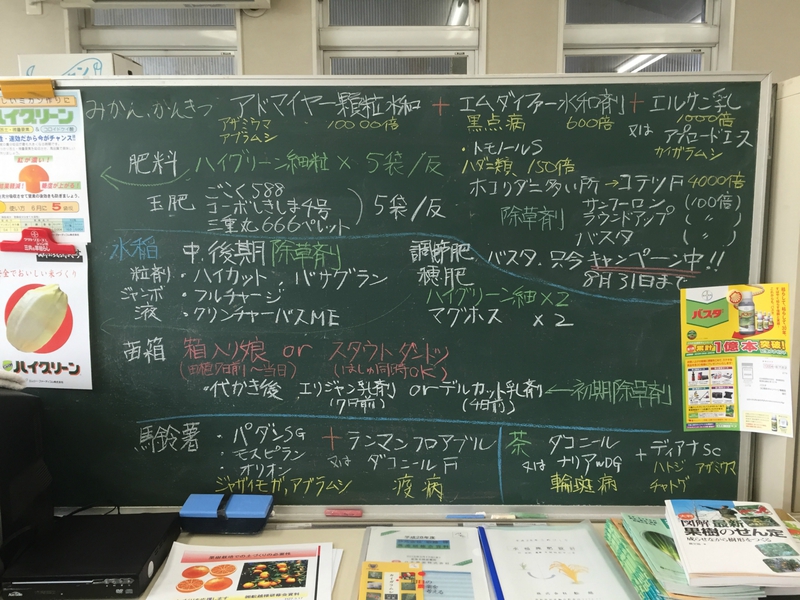 みかん、かんきつ アドマイヤー顆粒水和 + エムダイファー水和剤 + エルサン乳
アザミウマ 10000倍 黒点病 600倍 1000倍
アブラムシ 又は アプロードエース
・トモノールS カイガラムシ
ハダニ類 150倍
肥料 ハイグリーン細粒 × 5袋/反
ホコリダニ多い所→コテツF 4000倍
玉肥 ごくく588
コーポしきしま4号
三重丸666ペレット
5袋/反
除草剤 サンフーロン (100倍)
ラウンドアップ (〃)
バスタ (〃)
水稲 中.後期 除草剤
粒剤・ハイカット・バサグラン
ジャンボ・フルチャージ
液・クリンチャーバスME
調節肥
穂肥
ハイグリーン細×2
マグホス ×2
バスタ.只今キャンペーン中!!
8月31日まで
苗箱 箱入り娘 or スタウトダントツ
(田植7日前〜当日) (はしゅ同時OK)
・代かき後 エリジャン乳剤 or デルカット乳剤 ←初期除草剤
(7日前) (4日前)
馬鈴薯・パダンSG + ランマンフロアブル
・モスピラン 又は ダコニールF
・オリオン
ジャガイモガ,アブラムシ 疫病
茶 ダコニール + ディアナSC
又は ナリアWDG ハトジ アザミウマ
輪斑病 チャトゲ
ハイグリーン
ハイグリーン
バスタ
1億本突破!
図解 最新
果樹のせん定
成らせながら樹形をつくる